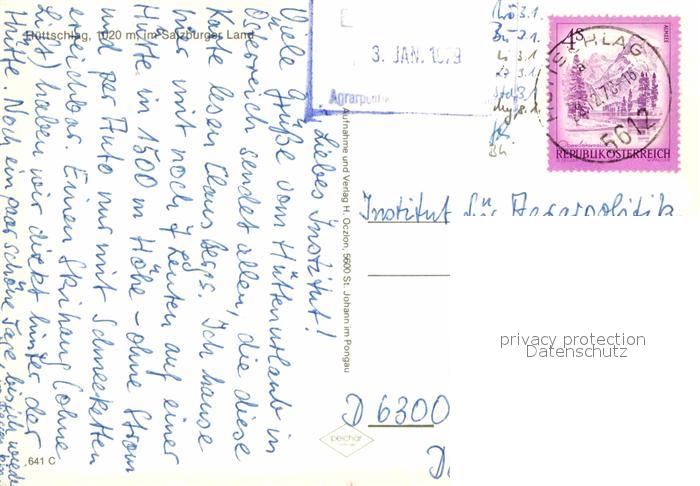 Hüttschlag, 1020 m, im Salzburger Land
Liebes Institut!
Viele Grüße vom Hüttenurlaub in
Österreich sendet allen, die diese
Karte lesen Claus Bergs. Ich hause
hier mit noch 7 Leuten auf einer
Hütte in 1500 m Höhe - ohne Strom
und per Auto nur mit Schneeketten
erreichbar. Einen Skihang (ohne
Lift) haben wir direkt hinter der
Hütte. Noch ein paar schöne Tage, bis ich wieder
641 C
Aufnahme und Verlag H. Oczlon, 5600 St. Johann im Pongau
pechar
3. JAN. 1979
Agrarpolitik
HÜTTSCHLAG
5612
4S
REPUBLIK ÖSTERREICH
Institut für Agrarpolitik
privacy protection
Datenschutz
D 6300
D